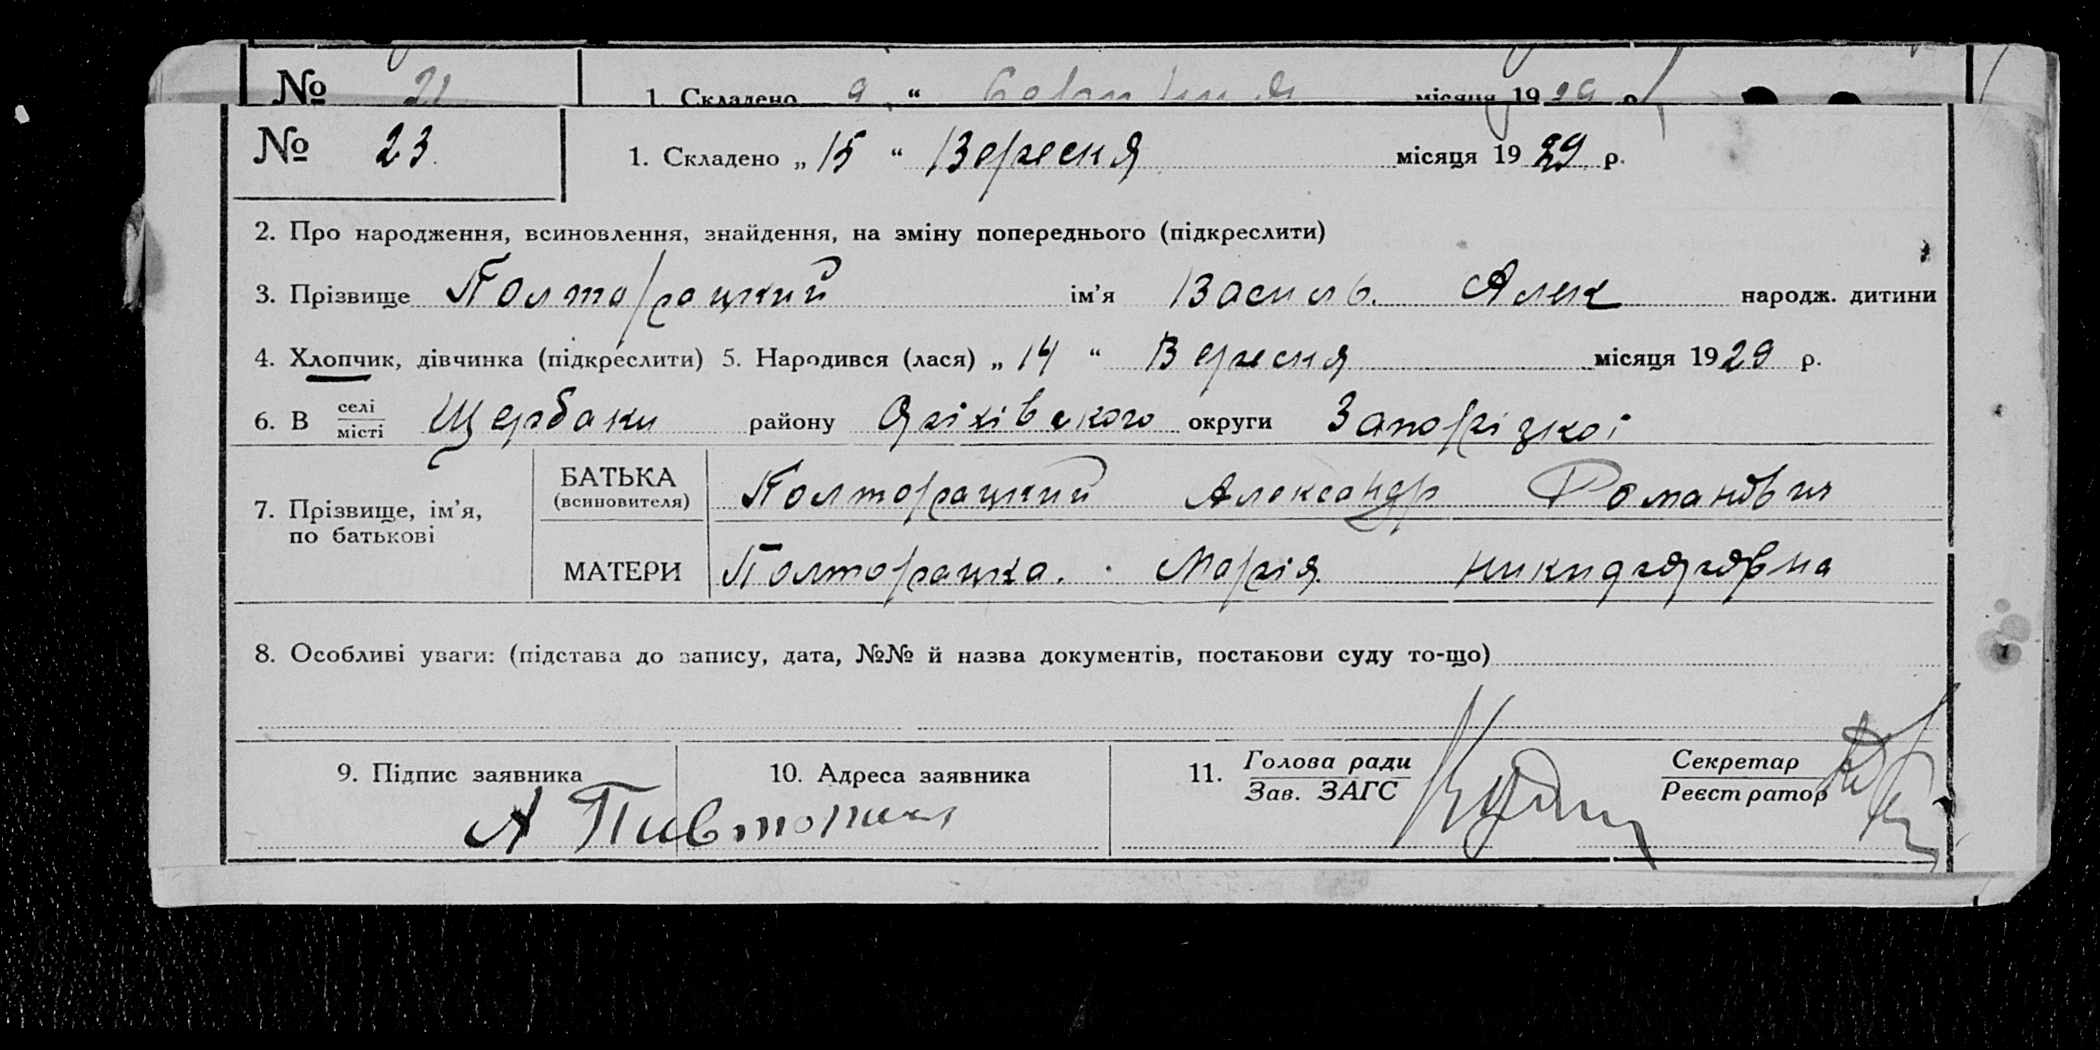 № 1. Складено 9 “ місяця 1929 р.
№ 23. 1. Складено „ 15 “ Вересня місяця 1929 р.
2. Про народження, всиновлення, знайдення, на зміну попереднього (підкреслити)
3. Прізвище Полторацкий ім’я Василь. Алек народж. дитини
4. Хлопчик, дівчинка (підкреслити) 5. Народився (лася) „ 14 “ Вересня місяця 1929 р.
6. В селі Щербаки району Оріхівского округи Запорізкоі
місті
7. Прізвище, ім’я, по батькові
БАТЬКА (всиновителя) Полторацкий Александр Романович
МАТЕРИ Полторацка. Марія
8. Особливі уваги: (підстава до запису, дата, №№ й назва документів, постанови суду то-що)
9. Підпис заявника 10. Адреса заявника 11. Голова ради Секретар
Зав. ЗАГС Реєстратор
А